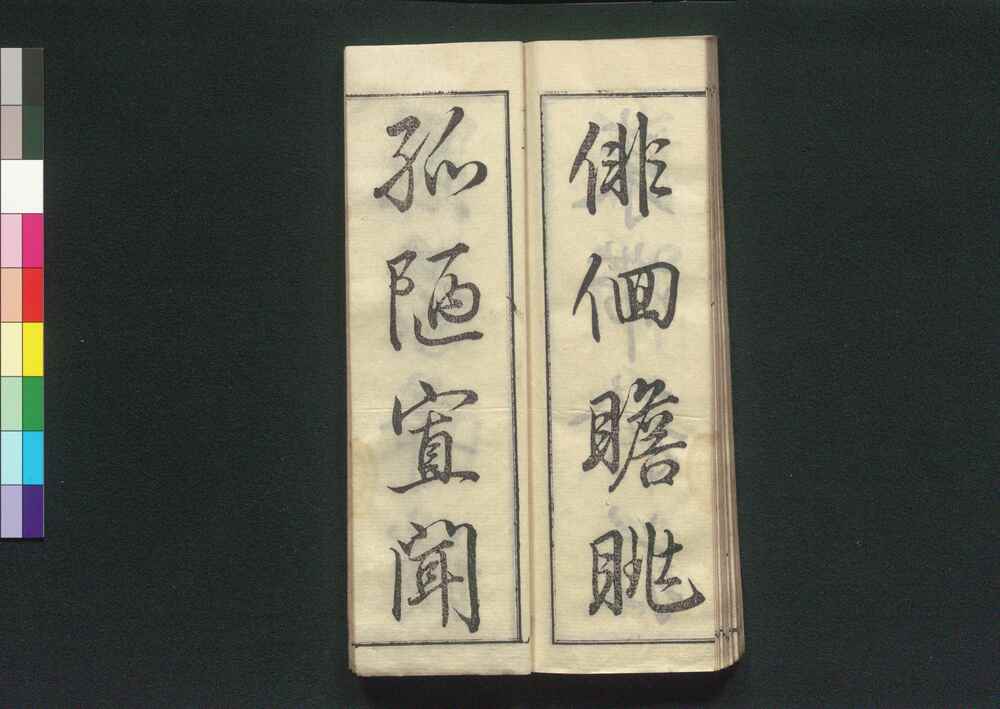 俳佪瞻眺
孤陋寡聞